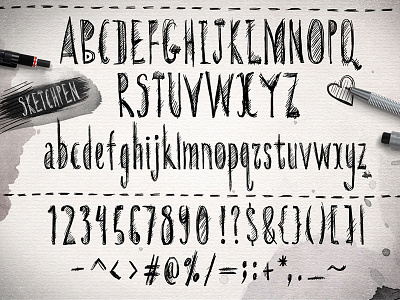 ABCDEFGHIJKLMNOPQ
RSTUVWXYZ
SKETCHPEN
abcdefghijklmnopqrstuvwxyz
1234567890!?$&{}()[]|
-^<>#@%/=:;+*,._~